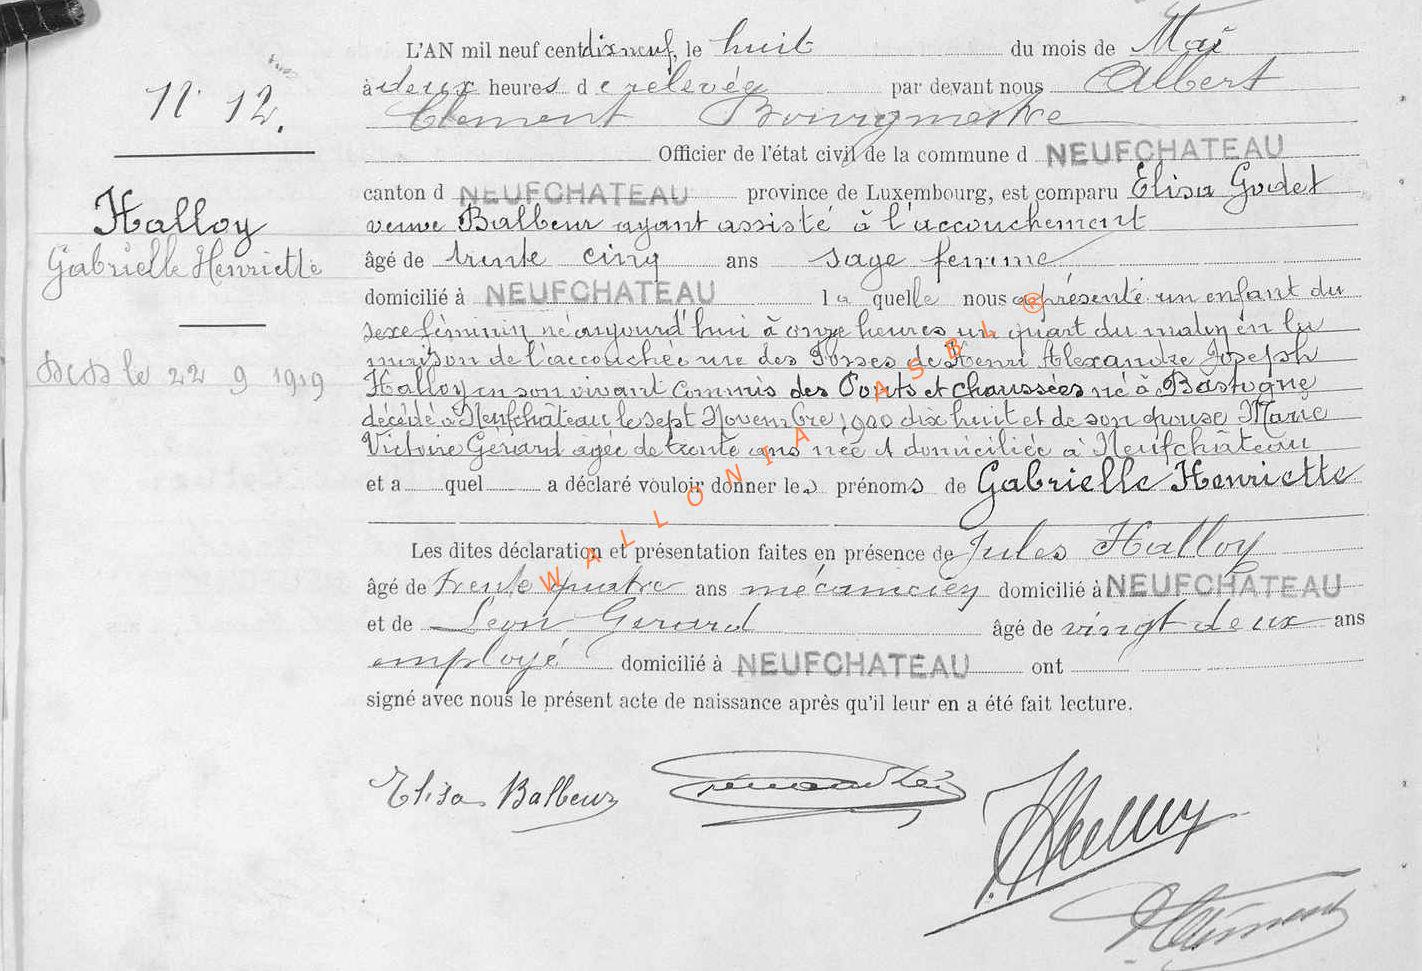 N° 12.
Halloy
Gabrielle Henriette
DCD le 22 9 1919
L'AN mil neuf cent dix neuf, le huit du mois de Mai
à deux heures de relevée par devant nous Albert
Clement Bourgmestre
Officier de l'état civil de la commune d NEUFCHATEAU
canton d NEUFCHATEAU province de Luxembourg, est comparu Elisa Godet
veuve Balbeur ayant assisté à l'accouchement
âgé de trente cinq ans sage femme
domicilié à NEUFCHATEAU la quelle nous a présenté un enfant du
sexe féminin né aujourd'hui à onze heures un quart du matin en la
maison de l'accouchée rue des Fosses de Henri Alexandre Joseph
Halloy en son vivant Commis des Ponts et chaussées né à Bastogne
décédé à Neufchâteau le sept Novembre 1900 dix huit et de son épouse Marie
Victoire Gerard agée de trente ans née et domiciliée à Neufchâteau
et a quel a déclaré vouloir donner les prénoms de Gabrielle Henriette
Les dites déclaration et présentation faites en présence de Jules Halloy
âgé de trente quatre ans mécanicien domicilié à NEUFCHATEAU
et de Leon Gerard âgé de vingt deux ans
employé domicilié à NEUFCHATEAU ont
signé avec nous le présent acte de naissance après qu'il leur en a été fait lecture.
Elisa Balbeur
J Halloy
A Clément
WALLONIA ASBL ®